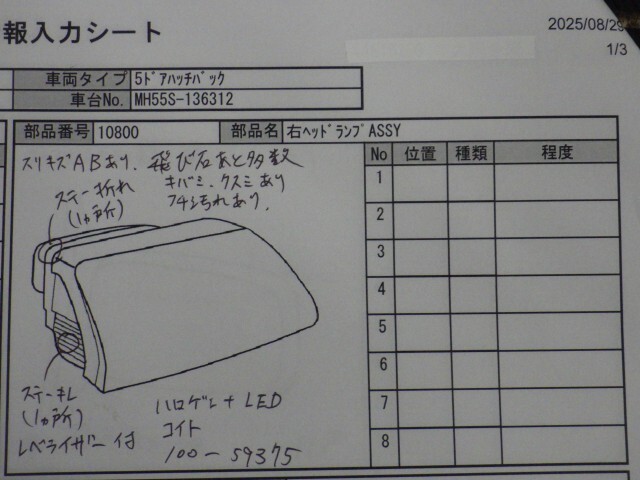 報入力シート
2025/08/29
1/3
車両タイプ 5ドアハッチバック
車台No. MH55S-136312
部品番号 10800 部品名 右ヘッドランプASSY
スリキズABあり、飛び石あと多数
キバミ、クスミあり
ステー折れ
(1ヵ所)
No 位置 種類 程度
1
2
3
4
5
6
7
8
(1ヵ所)
レベライザー付
ハロゲン+LED
コイト
100-59375